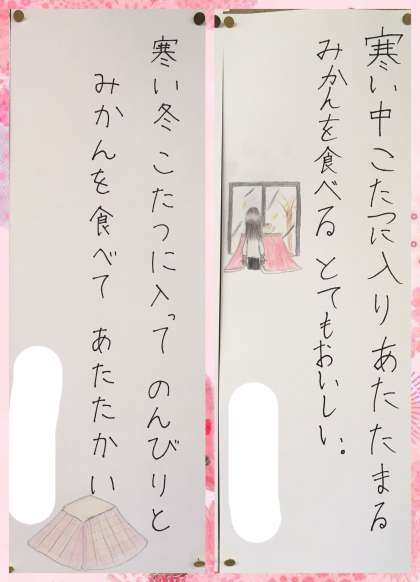 寒い中 こたつに入り あたたまる
みかんを食べる とてもおいしい。
寒い冬 こたつに入って のんびりと
みかんを食べて あたたかい